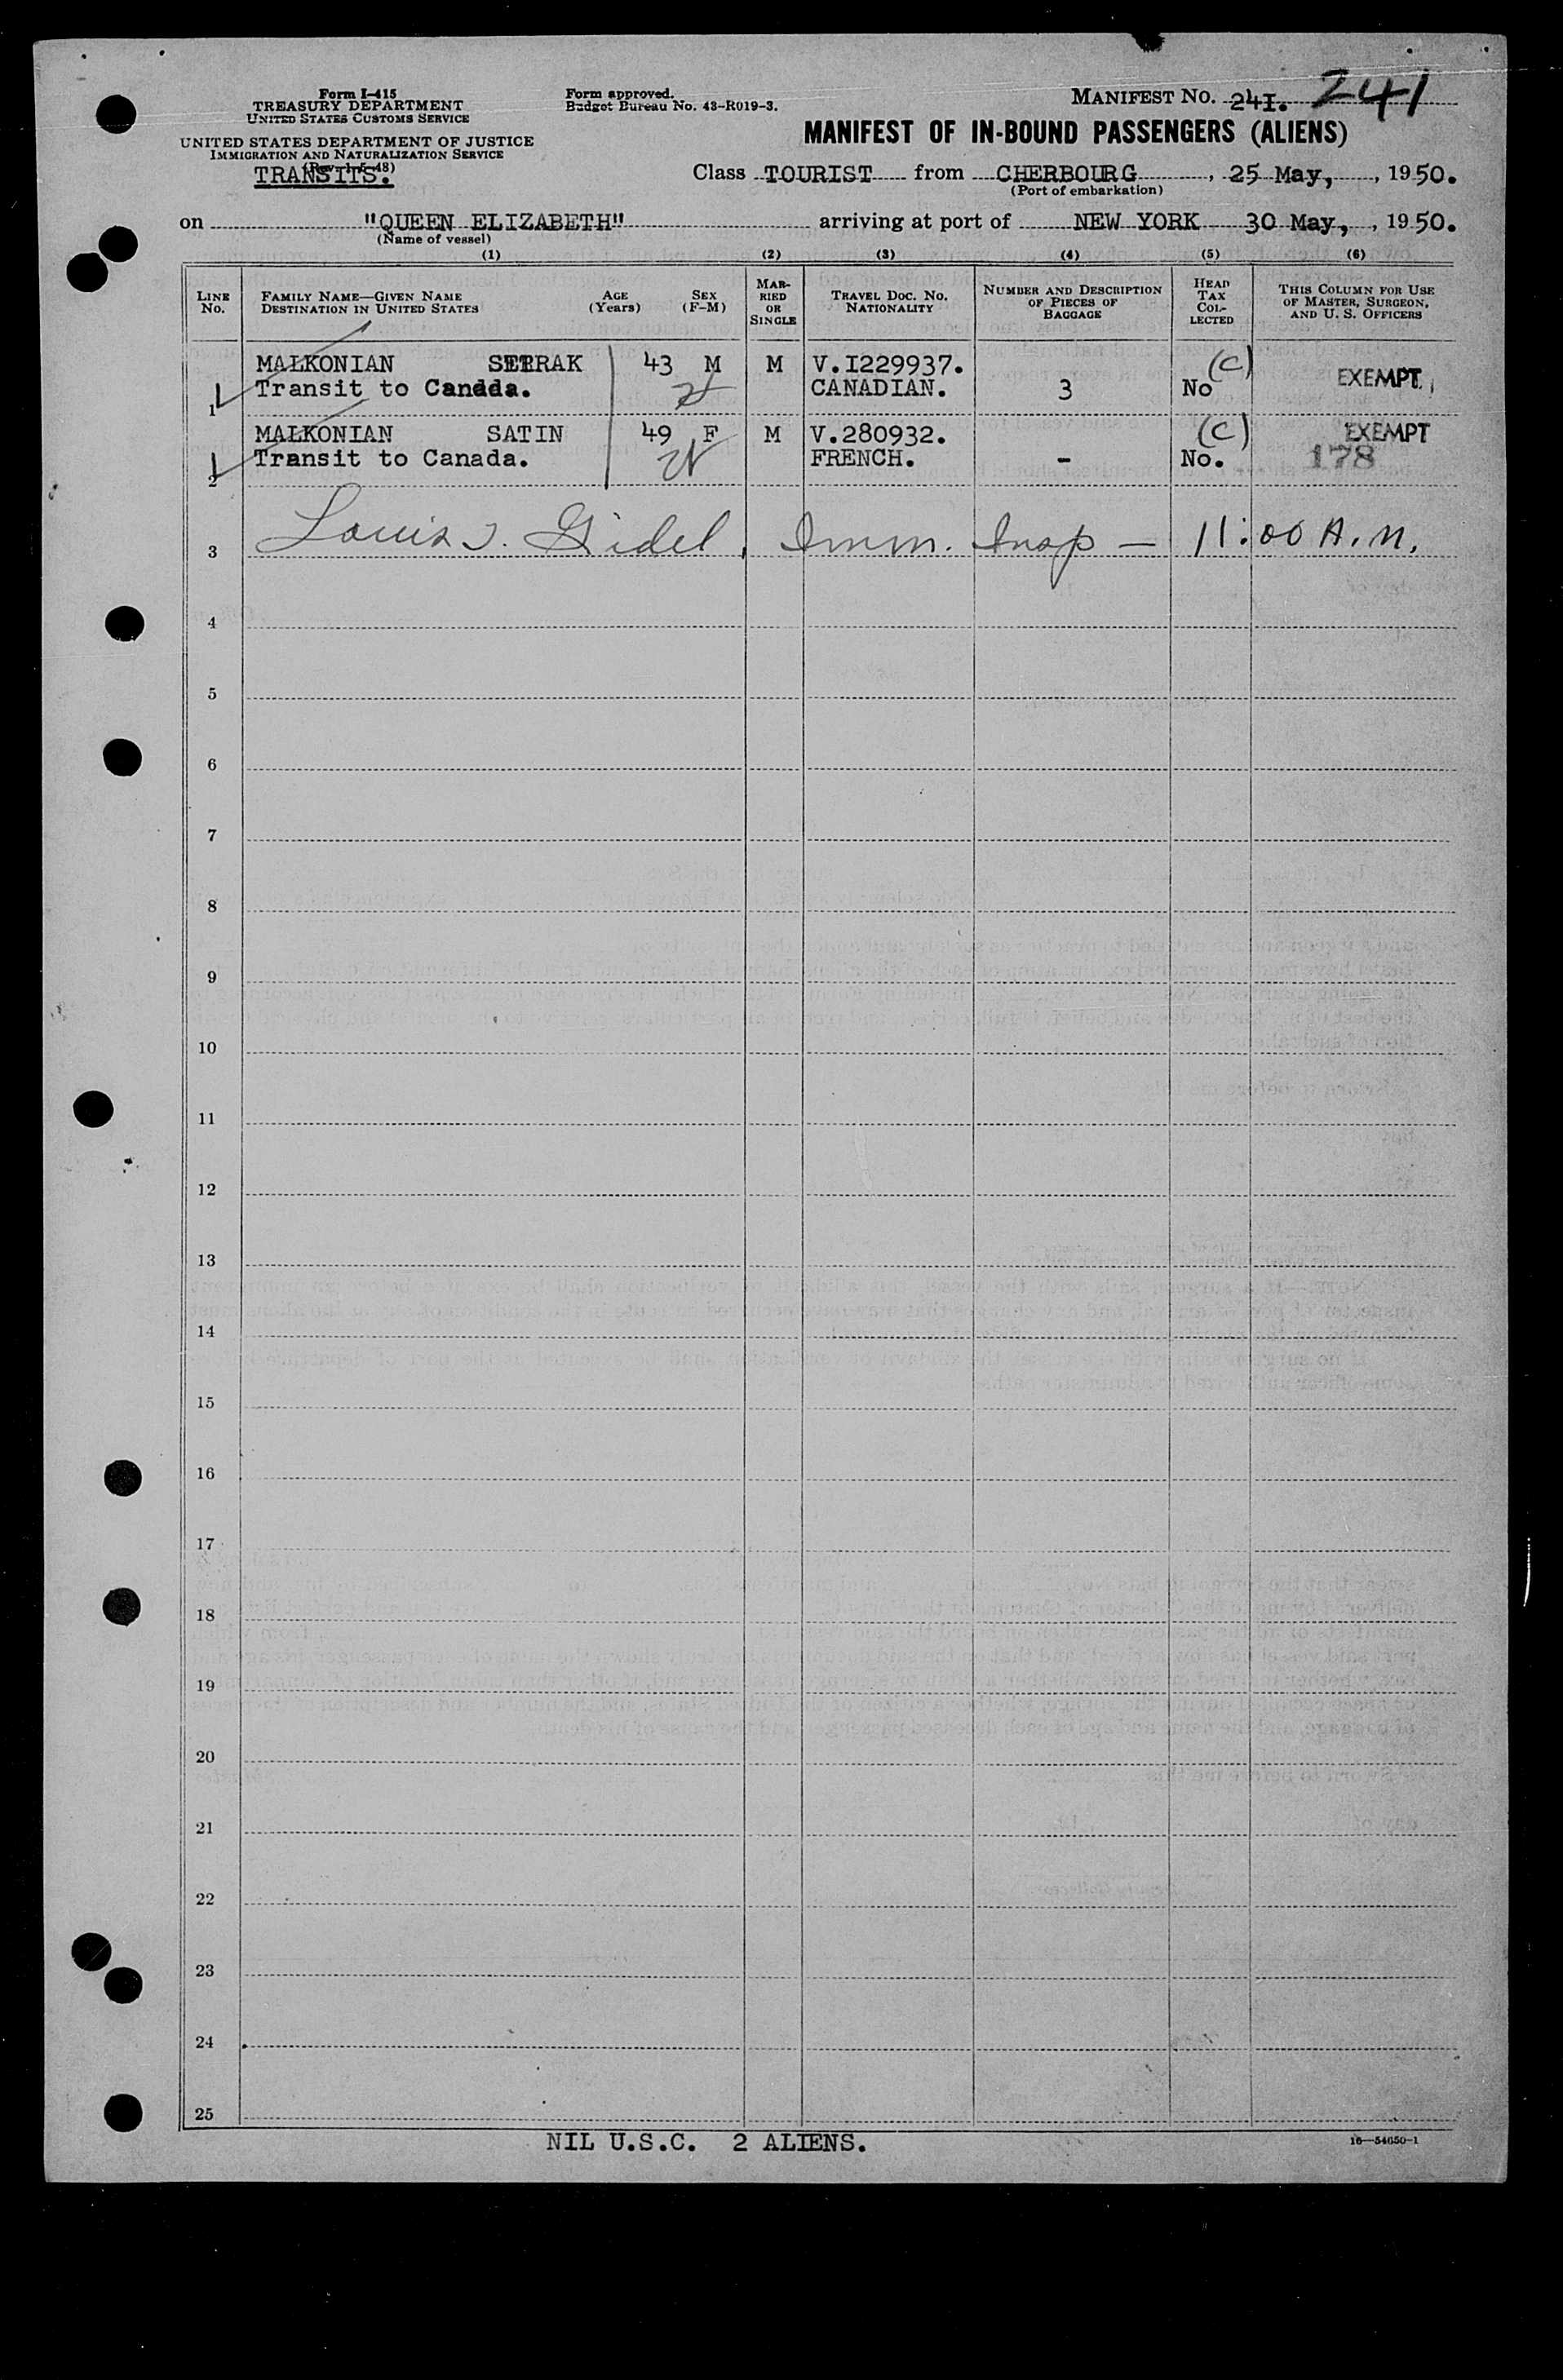 Form I-415
TREASURY DEPARTMENT
UNITED STATES CUSTOMS SERVICE
UNITED STATES DEPARTMENT OF JUSTICE
IMMIGRATION AND NATURALIZATION SERVICE
TRANSITS.
Form approved.
Budget Bureau No. 43-R019-3.
MANIFEST NO. 24I. 241
MANIFEST OF IN-BOUND PASSENGERS (ALIENS)
Class TOURIST from CHERBOURG, 25 May, 1950.
(Port of embarkation)
on "QUEEN ELIZABETH" arriving at port of NEW YORK 30 May, 1950.
(Name of vessel)
(1) (2) (3) (4) (5) (6)
LINE No. FAMILY NAME—GIVEN NAME DESTINATION IN UNITED STATES AGE (Years) SEX (F-M) MARRIED OR SINGLE TRAVEL DOC. NO. NATIONALITY NUMBER AND DESCRIPTION OF PIECES OF BAGGAGE HEAD TAX COLLECTED THIS COLUMN FOR USE OF MASTER, SURGEON, AND U. S. OFFICERS
MALKONIAN SETRAK 43 M M V.I229937. (C) EXEMPT
1 Transit to Canada. CANADIAN. 3 No
MALKONIAN SATIN 49 F M V.280932. (C) EXEMPT
2 Transit to Canada. FRENCH. - No. 178
3 Louis J. Gidel, Imm. Insp — 11:00 A.M.
4
5
6
7
8
9
10
11
12
13
14
15
16
17
18
19
20
21
22
23
24
25
NIL U.S.C. 2 ALIENS.
16—54650-1